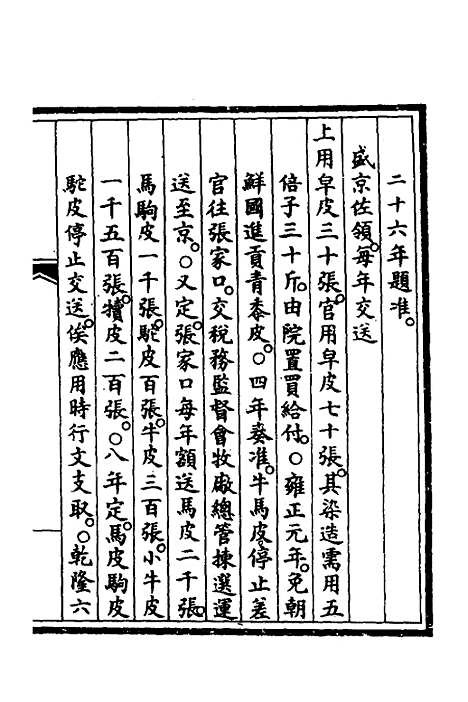 二十六年題准。
盛京佐領。每年交送
上用皁皮三十張。官用皁皮七十張。其染造需用五
倍子三十斤。由院置買給付。○雍正元年。免朝
鮮國進貢青黍皮。○四年奏准。牛馬皮停止差
官往張家口。交稅務監督會牧廠總管揀選運
送至京。○又定。張家口每年額送馬皮二千張。
馬駒皮一千張。駝皮百張。牛皮三百張。小牛皮
一千五百張。犢皮二百張。○八年定。馬皮駒皮
駝皮停止交送。俟應用時行文支取。○乾隆六